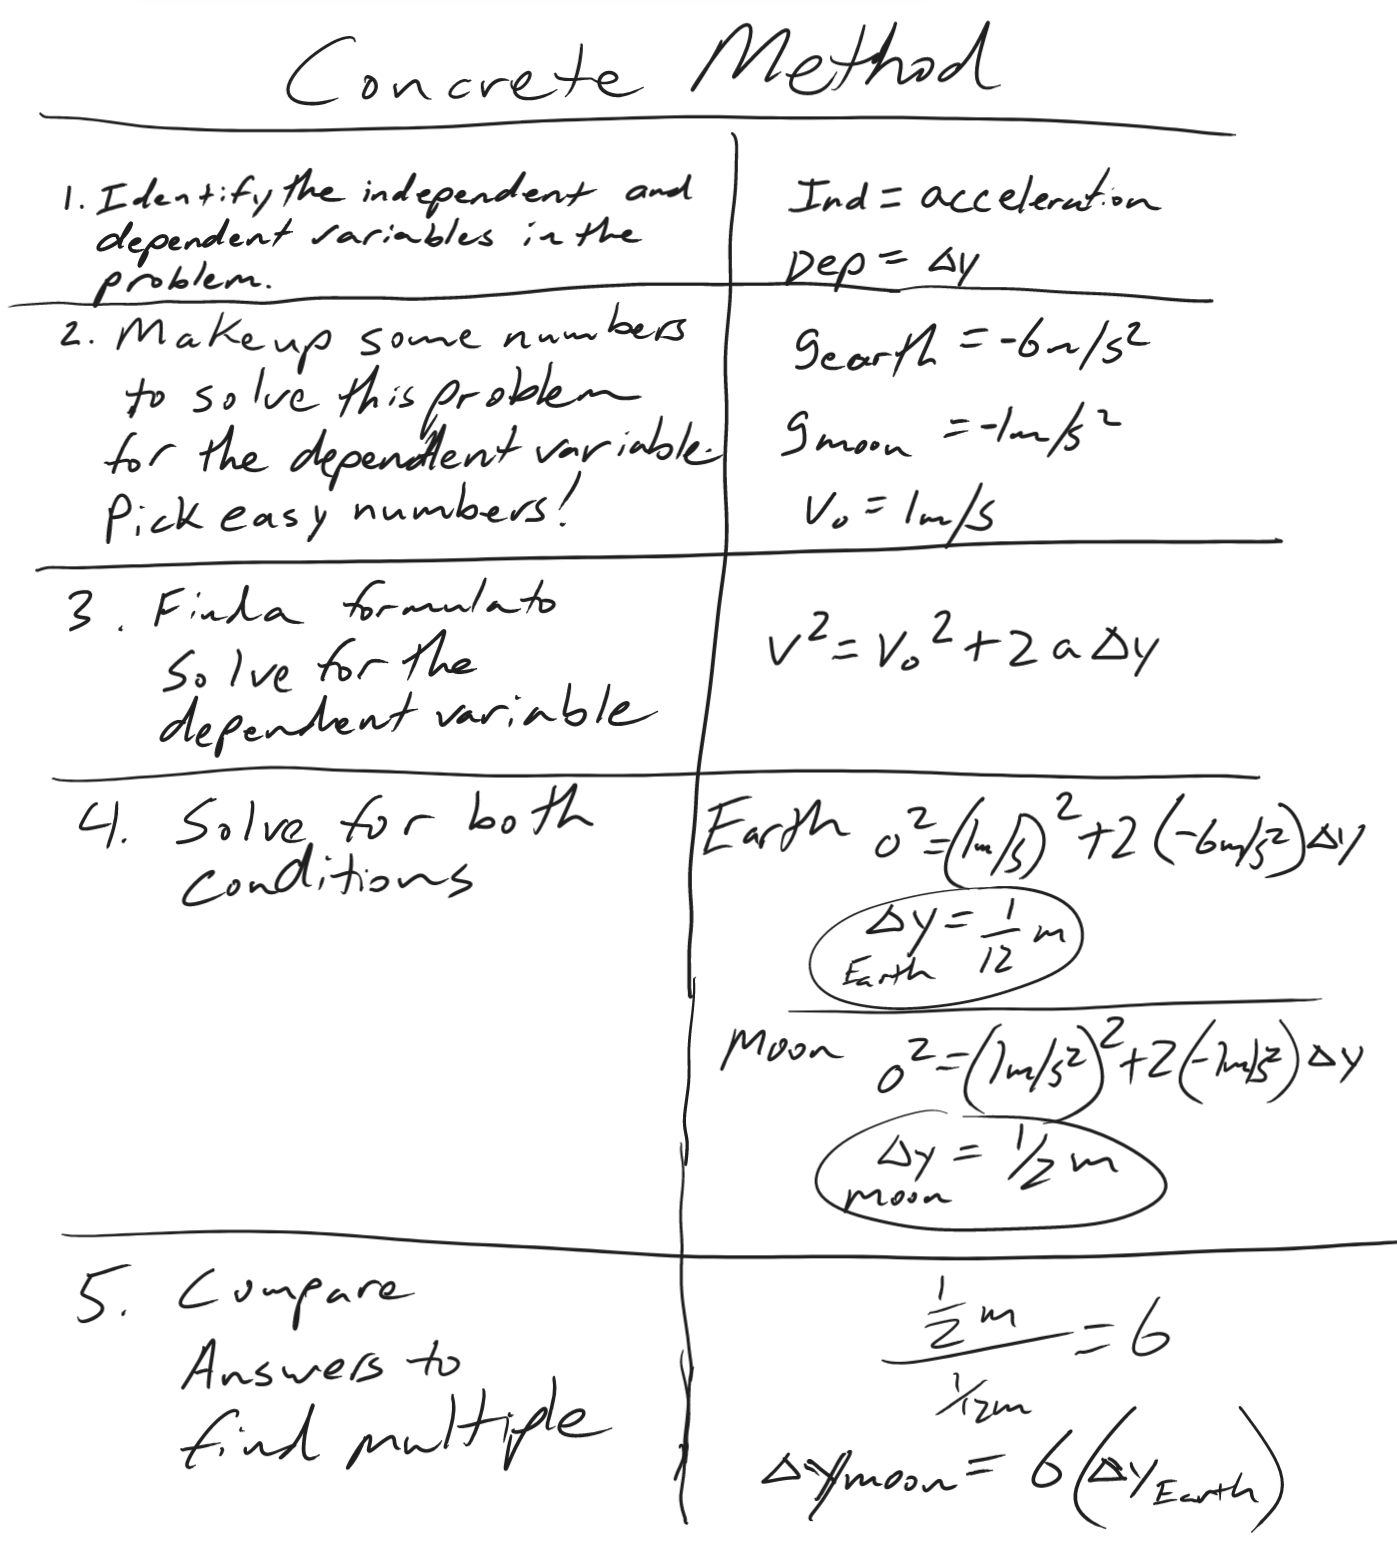 Concrete Method
1. Identify the independent and
dependent variables in the
problem.
Ind = acceleration
Dep = Δy
2. Make up some numbers
to solve this problem
for the dependent variable.
Pick easy numbers!
gearth = -6m/s²
gmoon = -1m/s²
V₀ = 1m/s
3. Find a formula to
solve for the
dependent variable
V² = V₀² + 2aΔy
4. Solve for both
conditions
Earth 0² = (1m/s)² + 2(-6m/s²)Δy
Δy Earth = 1/12 m
Moon 0² = (1m/s²)² + 2(-1m/s²)Δy
Δy moon = 1/2 m
5. Compare
Answers to
find multiple
1/2 m / 1/12 m = 6
Δymoon = 6(ΔyEarth)